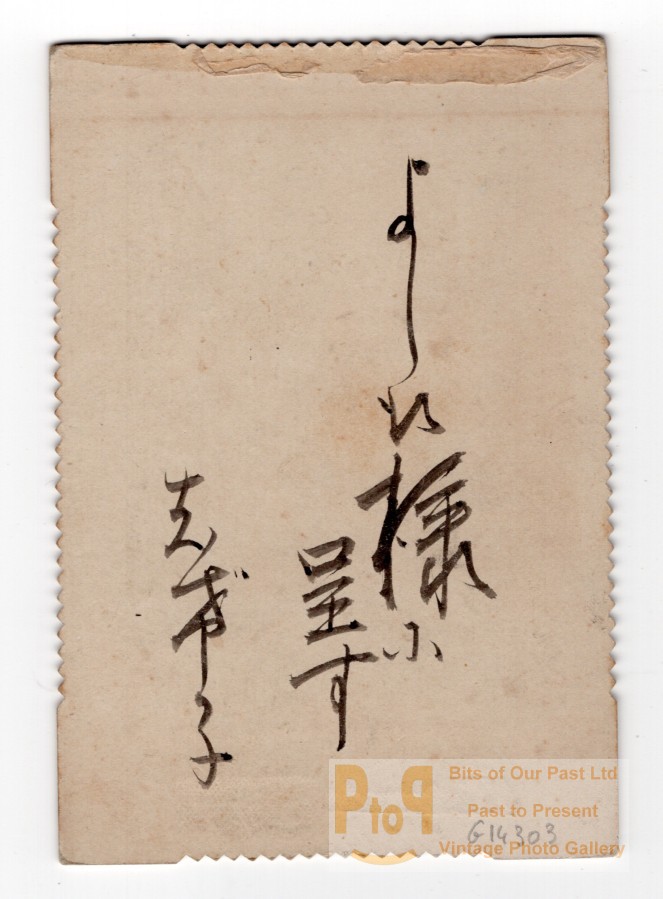 よし 様に
呈す
子
PtoP
Bits of Our Past Ltd
Past to Present
G14303
Vintage Photo Gallery